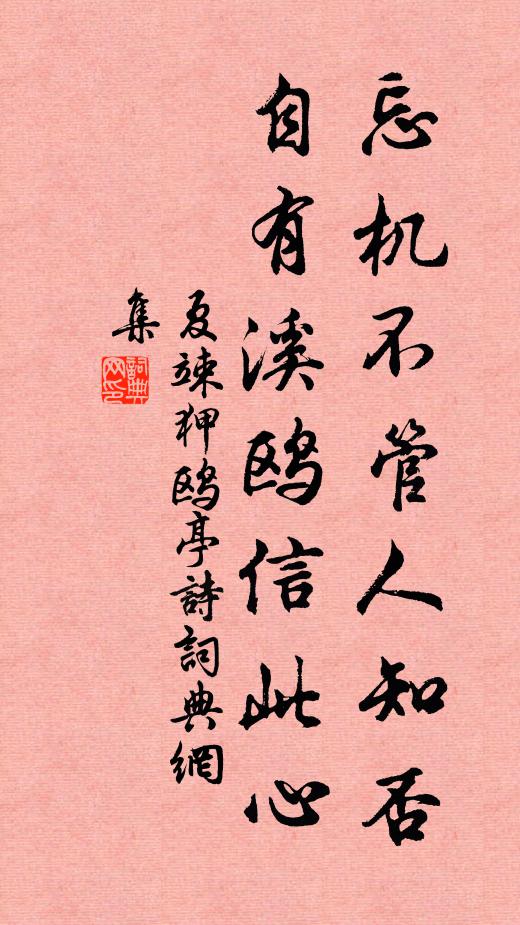 忘机不管人知否
自有溪鸥信此心
夏竦狎鸥亭詩詞典網
集
詞典網印